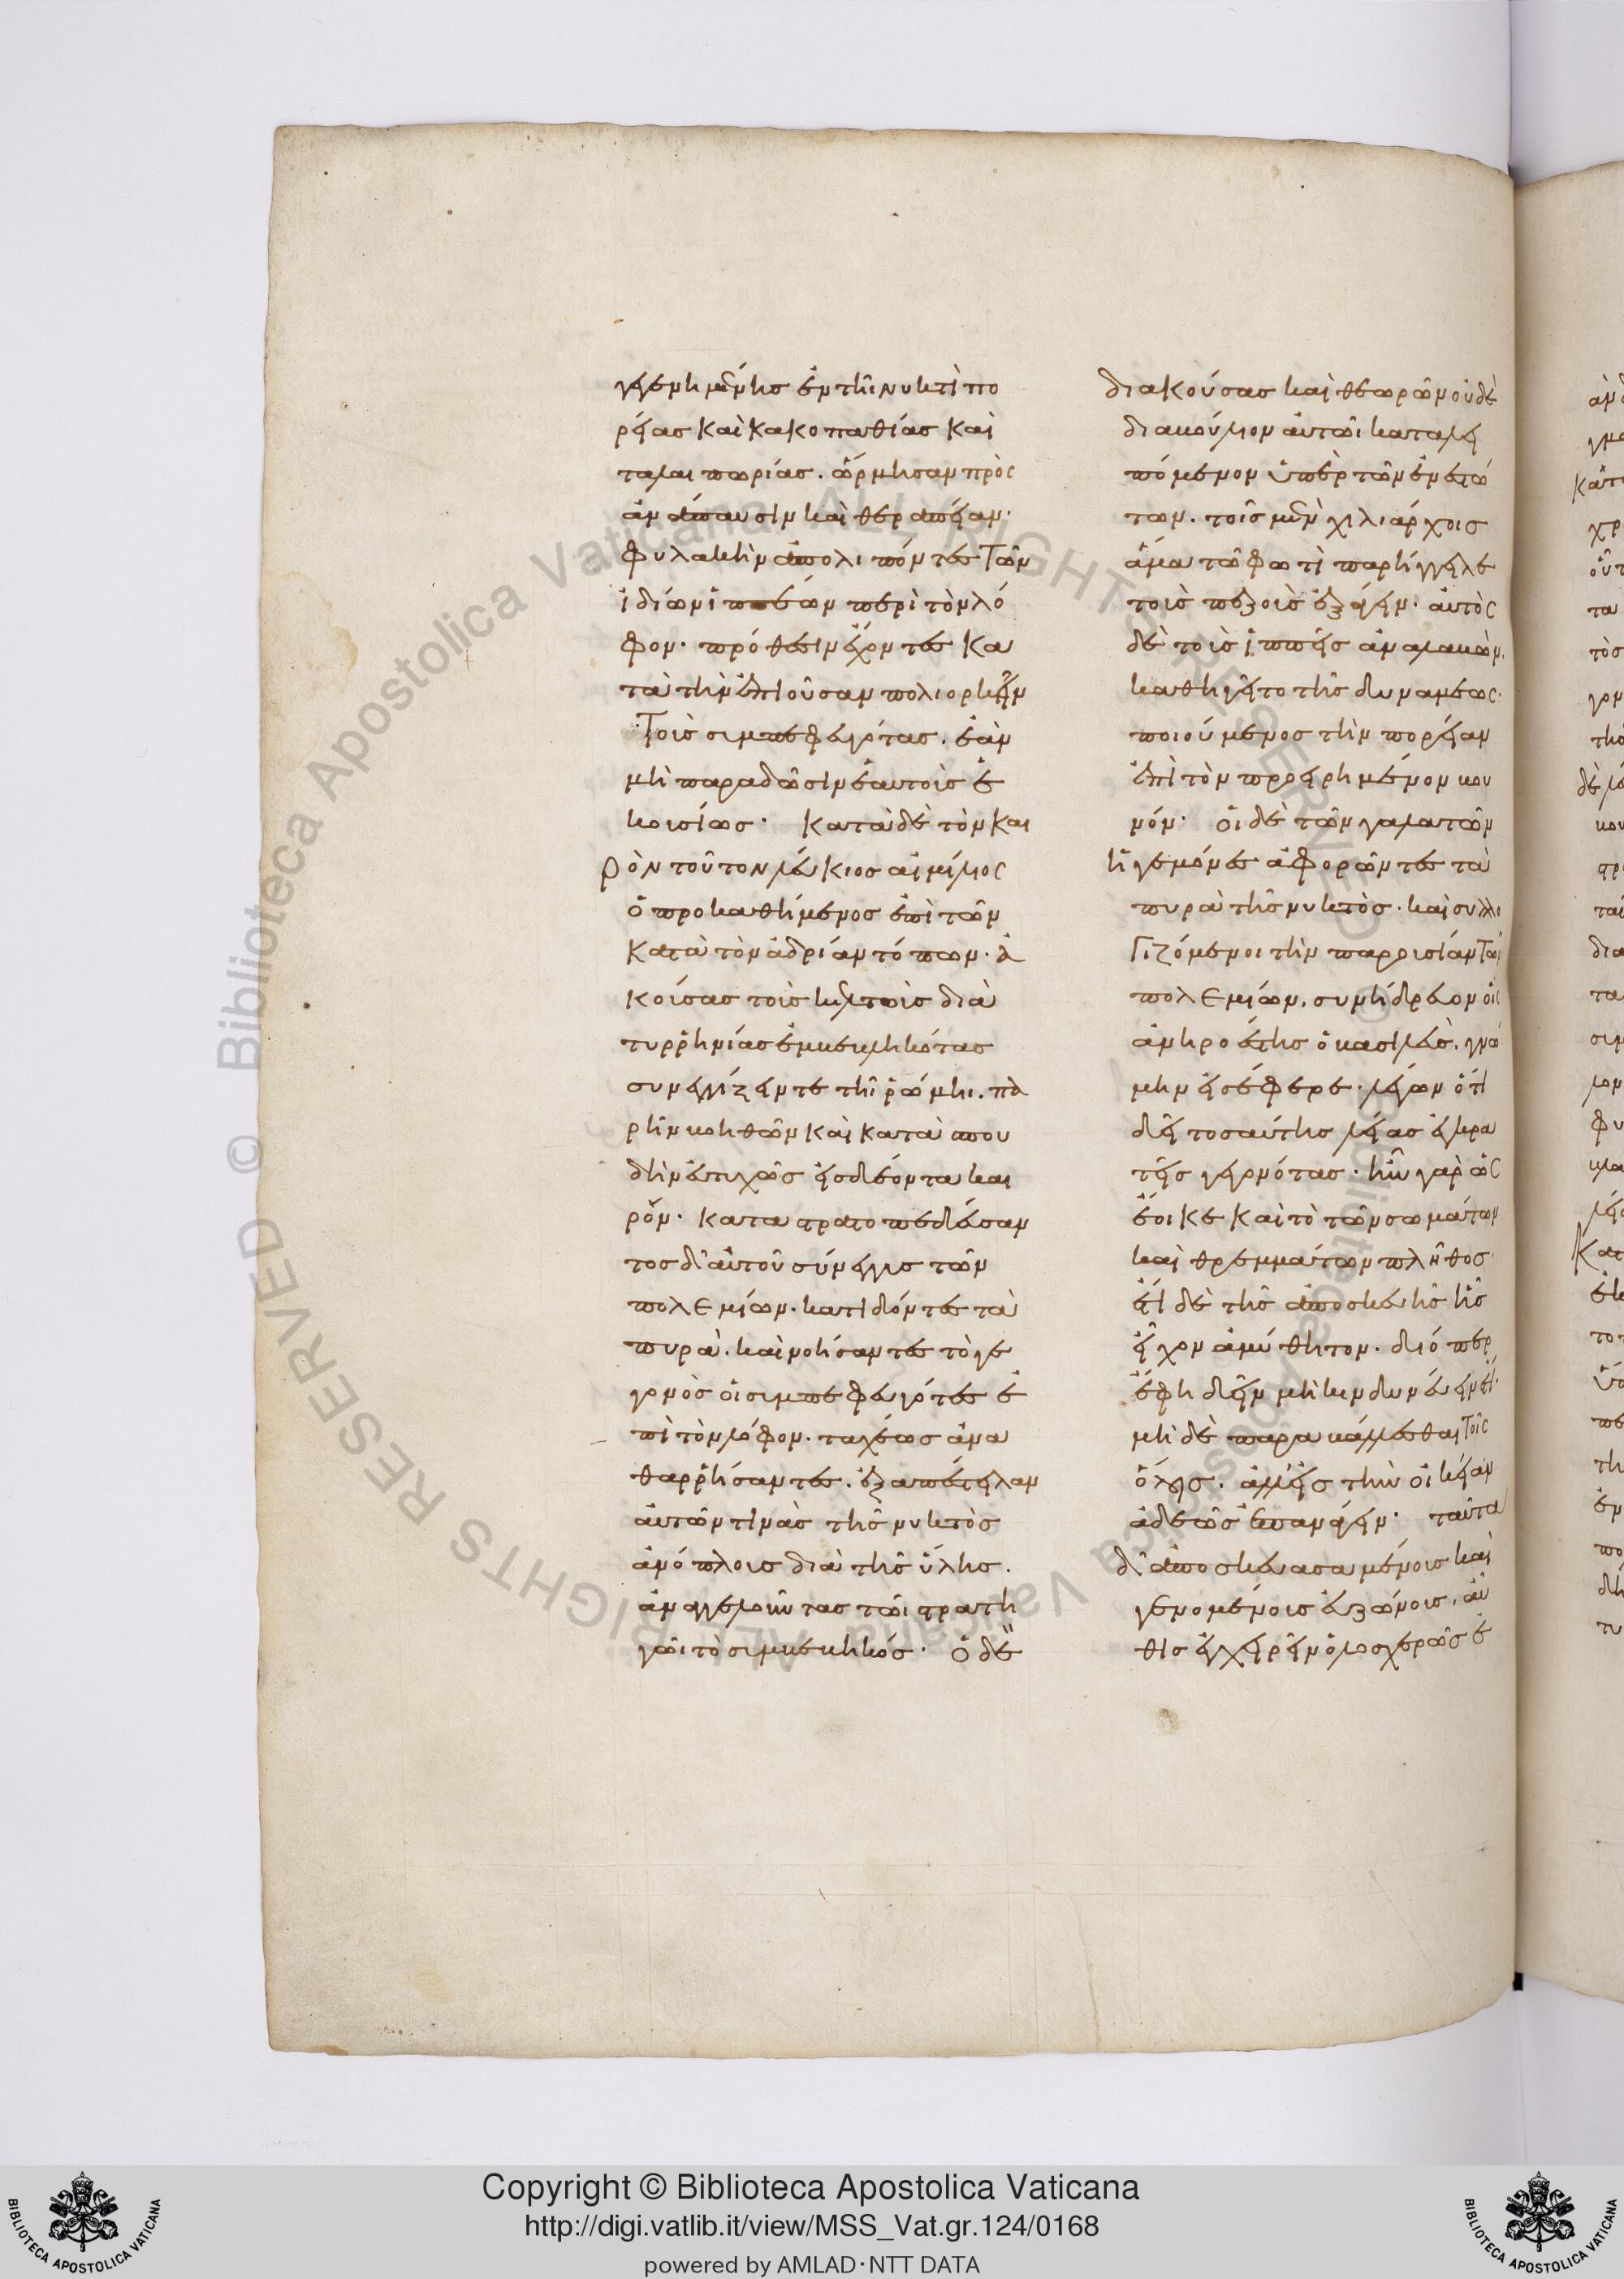 γεγενημένης ἐν τῆι νυκτὶ πο
ρείας καὶ κακοπαθίας καὶ
ταλαιπωρίας. ὥρμησαν πρὸς
ἀνάπαυσιν καὶ θεραπείαν·
φυλακὴν ἀπολιπόντες τῶν
ἰδίων ἱππέων περὶ τὸν λό
φον· πρόθεσιν ἔχοντες κα
τὰ τὴν ἐπιοῦσαν πολιορκεῖν
τοὺς συμπεφευγότας. ἐὰν
μὴ παραδῶσιν ἑαυτοὺς ἑ
κουσίως· κατὰ δὲ τὸν και
ρὸν τοῦτον λεύκιος αἰμίλιος
ὁ προκαθήμενος ἐπὶ τῶν
κατὰ τὸν ἀδρίαν τόπων· ἀ
κούσας τοὺς κελτοὺς διὰ
τυρρηνίας ἐμβεβληκότας
συνεγγίζειν τε τῆι ῥώμηι. πα
ρῆν βοηθῶν καὶ κατὰ σπου
δὴν εὐτυχῶς εἰς δέοντα και
ρόν· καταστρατοπεδεύσαν
τος δ' αὐτοῦ σύνεγγυς τῶν
πολεμίων. κατιδόντες τὰ
πυρὰ. καὶ νοήσαντες τὸ γε
γονὸς οἱ συμπεφευγότες ἐ
πὶ τὸν λόφον. ταχέως ἀνα
θαρρήσαντες. ἐξαπέστειλαν
αὑτῶν τινὰς τῆς νυκτὸς
ἀνόπλους διὰ τῆς ὕλης.
ἀναγγελοῦντας τῶι στρατη
γῶι τὸ συμβεβηκός· ὁ δὲ
διακούσας καὶ θεωρῶν οὐδὲ
διαβούλιον αὐτῶι καταλει
πόμενον ὑπὲρ τῶν ἐνεστώ
των. τοῖς μὲν χιλιάρχοις
ἅμα τῶ φωτὶ παρήγγειλε
τοὺς πεζοὺς ἐξάγειν. αὐτὸς
δὲ τοὺς ἱππεῖς ἀναλαβὼν.
καθηγεῖτο τῆς δυνάμεως.
ποιούμενος τὴν πορείαν
ἐπὶ τὸν προειρημένον βου
νόν· οἱ δὲ τῶν γαλατῶν
ἡγεμόνες ἀφορῶντες τὰ
πυρὰ τῆς νυκτὸς. καὶ συλλο
γιζόμενοι τὴν παρουσίαν τῶν
πολεμίων. συνήδρευον οἷς
ἀνηροέστης ὁ βασιλεὺς. γνώ
μην εἰσέφερε. λέγων ὅτι
δεῖ τοσαύτης λείας ἐγκρα
τεῖς γεγονότας. ἦν γὰρ ὡς
ἔοικε καὶ τὸ τῶν σωμάτων
καὶ θρεμμάτων πλῆθος.
ἔτι δὲ τῆς ἀποσκευῆς ἧς
εἶχον ἀμύθητον. διόπερ
ἔφη δεῖν μὴ κινδυνεύειν ἔτι.
μὴ δὲ παραβάλλεσθαι τοῖς
ὅλοις. ἀλλ' εἰς τὴν οἰκείαν
ἀδεῶς ἐπανάγειν· ταῦτα
δ' ἀποσκευασαμένοις καὶ
γενομένοις εὐζώνοις. αὖ
θις ἐγχειρεῖν ὁλοσχερῶς ἐ
Copyright © Biblioteca Apostolica Vaticana
http://digi.vatlib.it/view/MSS_Vat.gr.124/0168
powered by AMLAD·NTT DATA